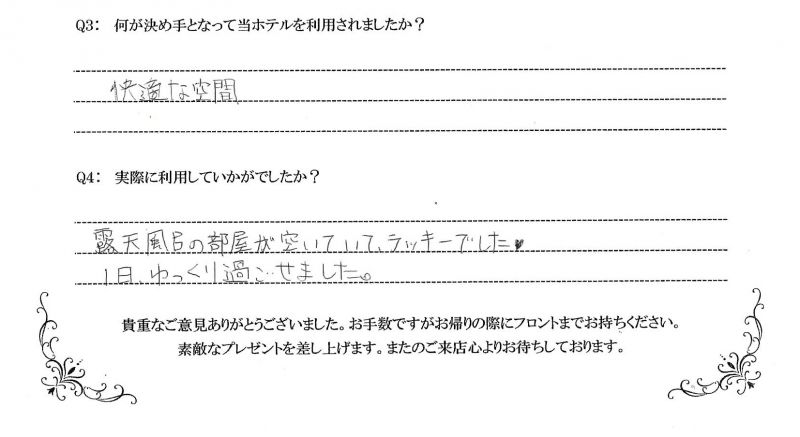 Q3: 何が決め手となって当ホテルを利用されましたか？
快適な空間
Q4: 実際に利用していかがでしたか？
露天風呂の部屋が空いていて、ラッキーでした♥
1日、ゆっくり過ごせました。
貴重なご意見ありがとうございました。お手数ですがお帰りの際にフロントまでお持ちください。
素敵なプレゼントを差し上げます。またのご来店心よりお待ちしております。